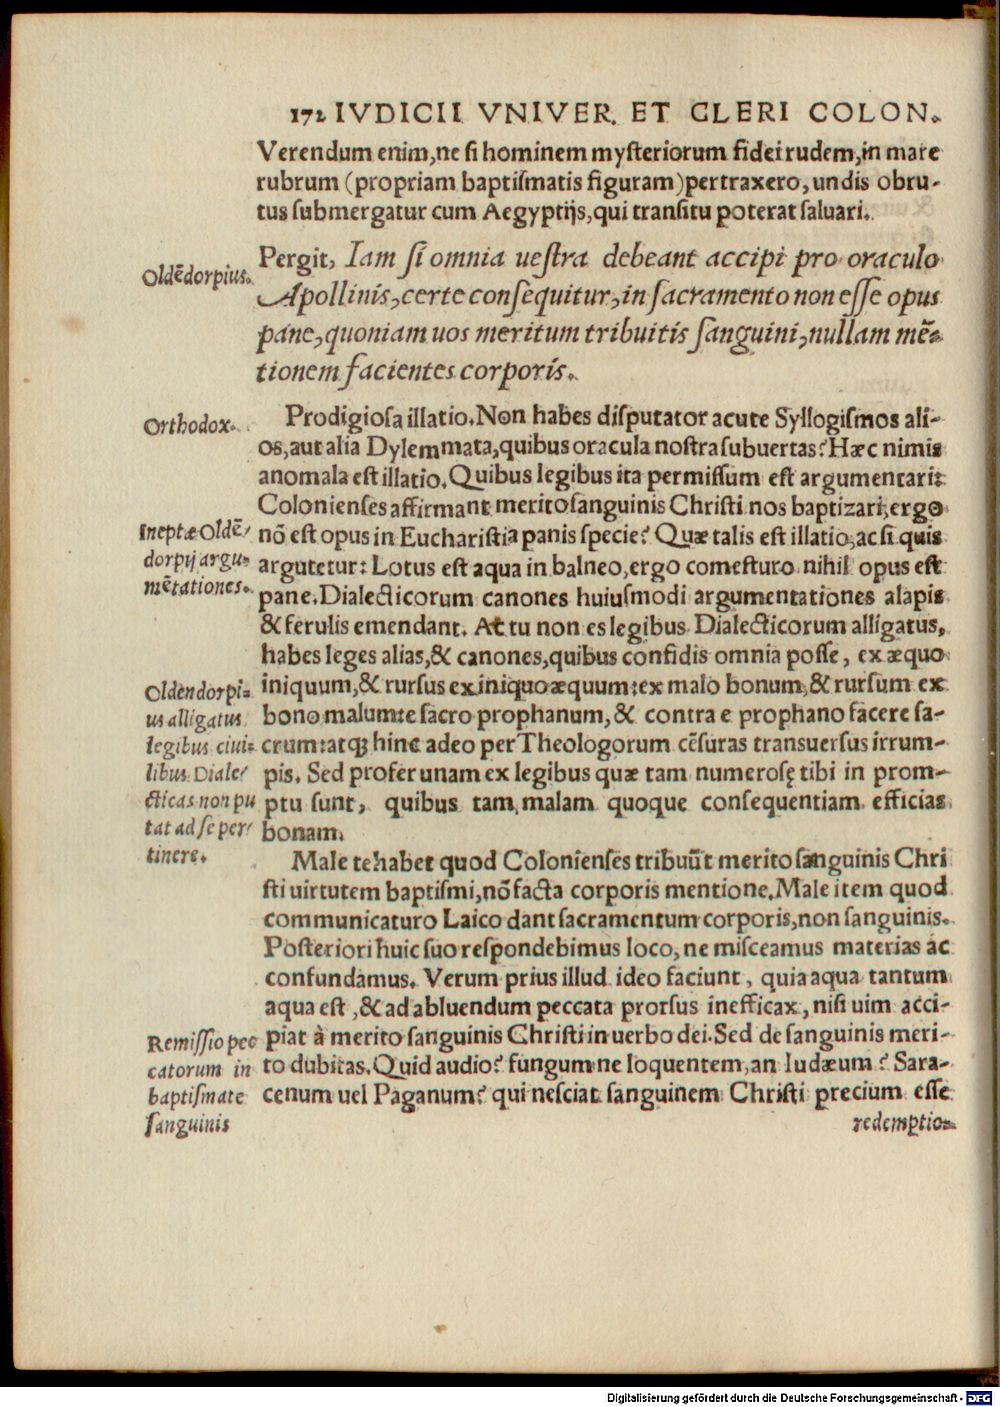 172 IVDICII VNIVER. ET CLERI COLON.
Verendum enim, ne si hominem mysteriorum fidei rudem, in mare
rubrum (propriam baptismatis figuram) pertraxero, undis obru-
tus submergatur cum Aegyptijs, qui transitu poterat saluari.
Oldēdorpius.
Pergit, Iam si omnia uestra debeant accipi pro oraculo
Apollinis, certe consequitur, in sacramento non esse opus
pane, quoniam uos meritum tribuitis sanguini, nullam mē-
tionem facientes corporis.
Orthodox.
Prodigiosa illatio. Non habes disputator acute Syllogismos ali-
os, aut alia Dylemmata, quibus oracula nostra subuertas? Hæc nimis
anomala est illatio. Quibus legibus ita permissum est argumentari:
Colonienses affirmant merito sanguinis Christi nos baptizari, ergo
Ineptæ Oldē-
dorpij argu-
mētationes.
nō est opus in Eucharistia panis specie? Quæ talis est illatio, ac si quis
argutetur: Lotus est aqua in balneo, ergo comesturo nihil opus est
pane. Dialecticorum canones huiusmodi argumentationes alapis
& ferulis emendant. At tu non es legibus Dialecticorum alligatus,
habes leges alias, & canones, quibus confidis omnia posse, ex æquo
Oldendorpi-
us alligatus
legibus ciui-
libus Diale-
cticas non pu
tat ad se per-
tinere.
iniquum, & rursus ex iniquo æquum: ex malo bonum, & rursum ex
bono malum: e sacro prophanum, & contra e prophano facere sa-
crum: atqꝫ hinc adeo per Theologorum cēsuras transuersus irrum-
pis. Sed profer unam ex legibus quæ tam numerosę tibi in prom-
ptu sunt, quibus tam malam quoque consequentiam efficias
bonam.
Male te habet quod Colonienses tribuūt merito sanguinis Chri
sti uirtutem baptismi, nō facta corporis mentione. Male item quod
communicaturo Laico dant sacramentum corporis, non sanguinis.
Posteriori huic suo respondebimus loco, ne misceamus materias ac
confundamus. Verum prius illud ideo faciunt, quia aqua tantum
aqua est, & ad abluendum peccata prorsus inefficax, nisi uim acci-
Remissio pec
catorum in
baptismate
sanguinis
piat à merito sanguinis Christi in uerbo dei. Sed de sanguinis meri-
to dubitas. Quid audio? fungum ne loquentem, an Iudæum? Sara-
cenum uel Paganum? qui nesciat sanguinem Christi precium esse
redemptio-
Digitalisierung gefördert durch die Deutsche Forschungsgemeinschaft - DFG